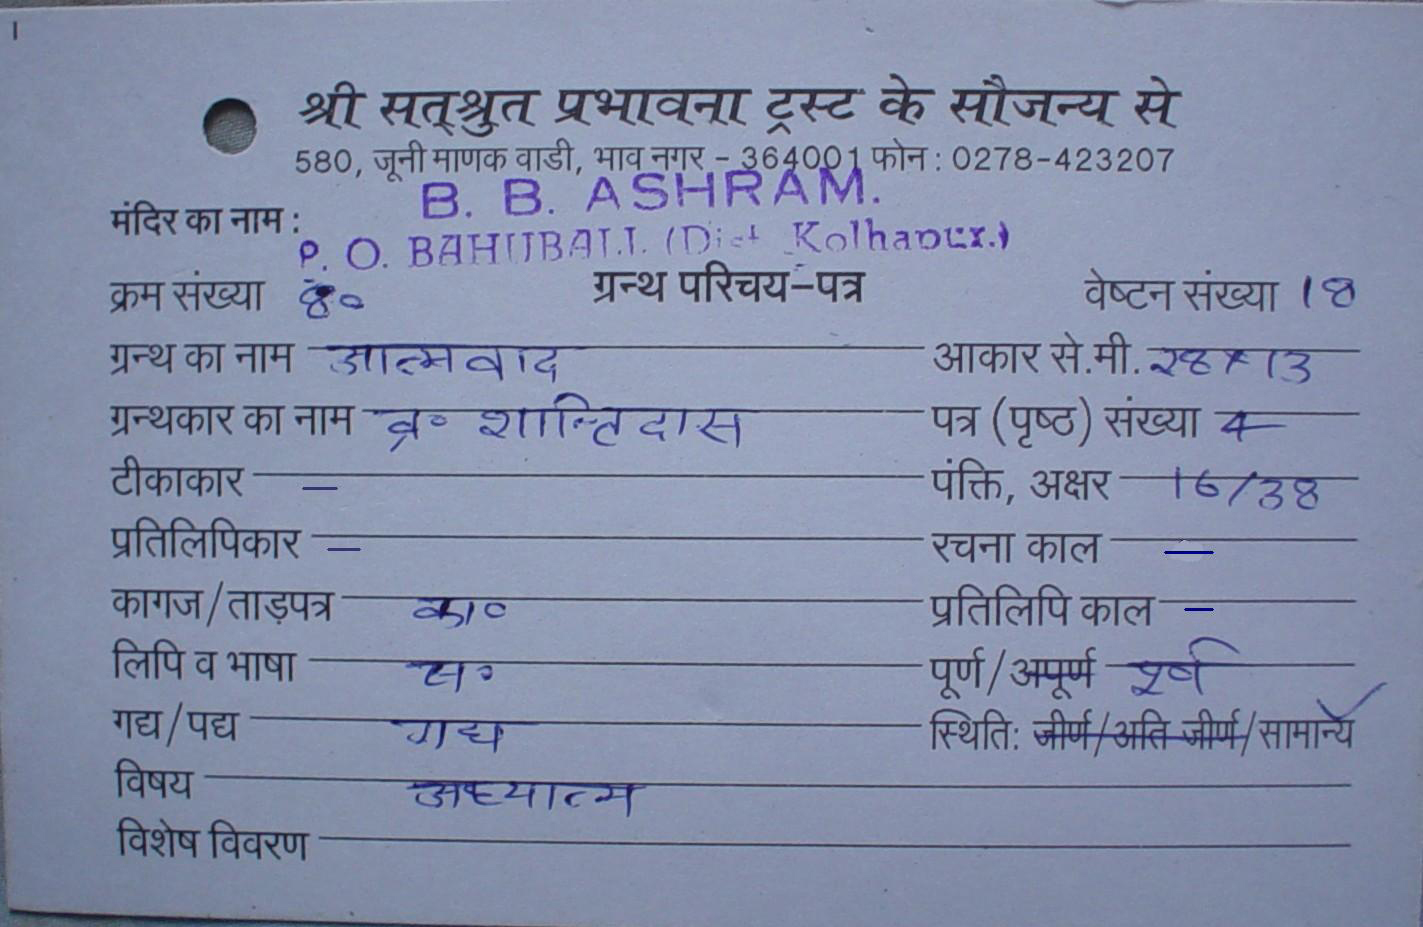 श्री सत्श्रुत प्रभावना ट्रस्ट के सौजन्य से
580, जूनी माणक वाडी, भाव नगर - 364001 फोन : 0278-423207
मंदिर का नाम : B. B. ASHRAM.
P. O. BAHUBALI. (Dist Kolhapur.)
क्रम संख्या ४० ग्रन्थ परिचय-पत्र वेष्टन संख्या 18
ग्रन्थ का नाम आत्मवाद आकार से.मी. 28 x 13
ग्रन्थकार का नाम ब्र० शान्तिदास पत्र (पृष्ठ) संख्या 4
टीकाकार — पंक्ति, अक्षर 16/38
प्रतिलिपिकार — रचना काल —
कागज/ताड़पत्र का० प्रतिलिपि काल —
लिपि व भाषा स० पूर्ण/अपूर्ण पूर्ण
गद्य/पद्य गद्य स्थिति: जीर्ण/अति जीर्ण/सामान्य
विषय अध्यात्म
विशेष विवरण